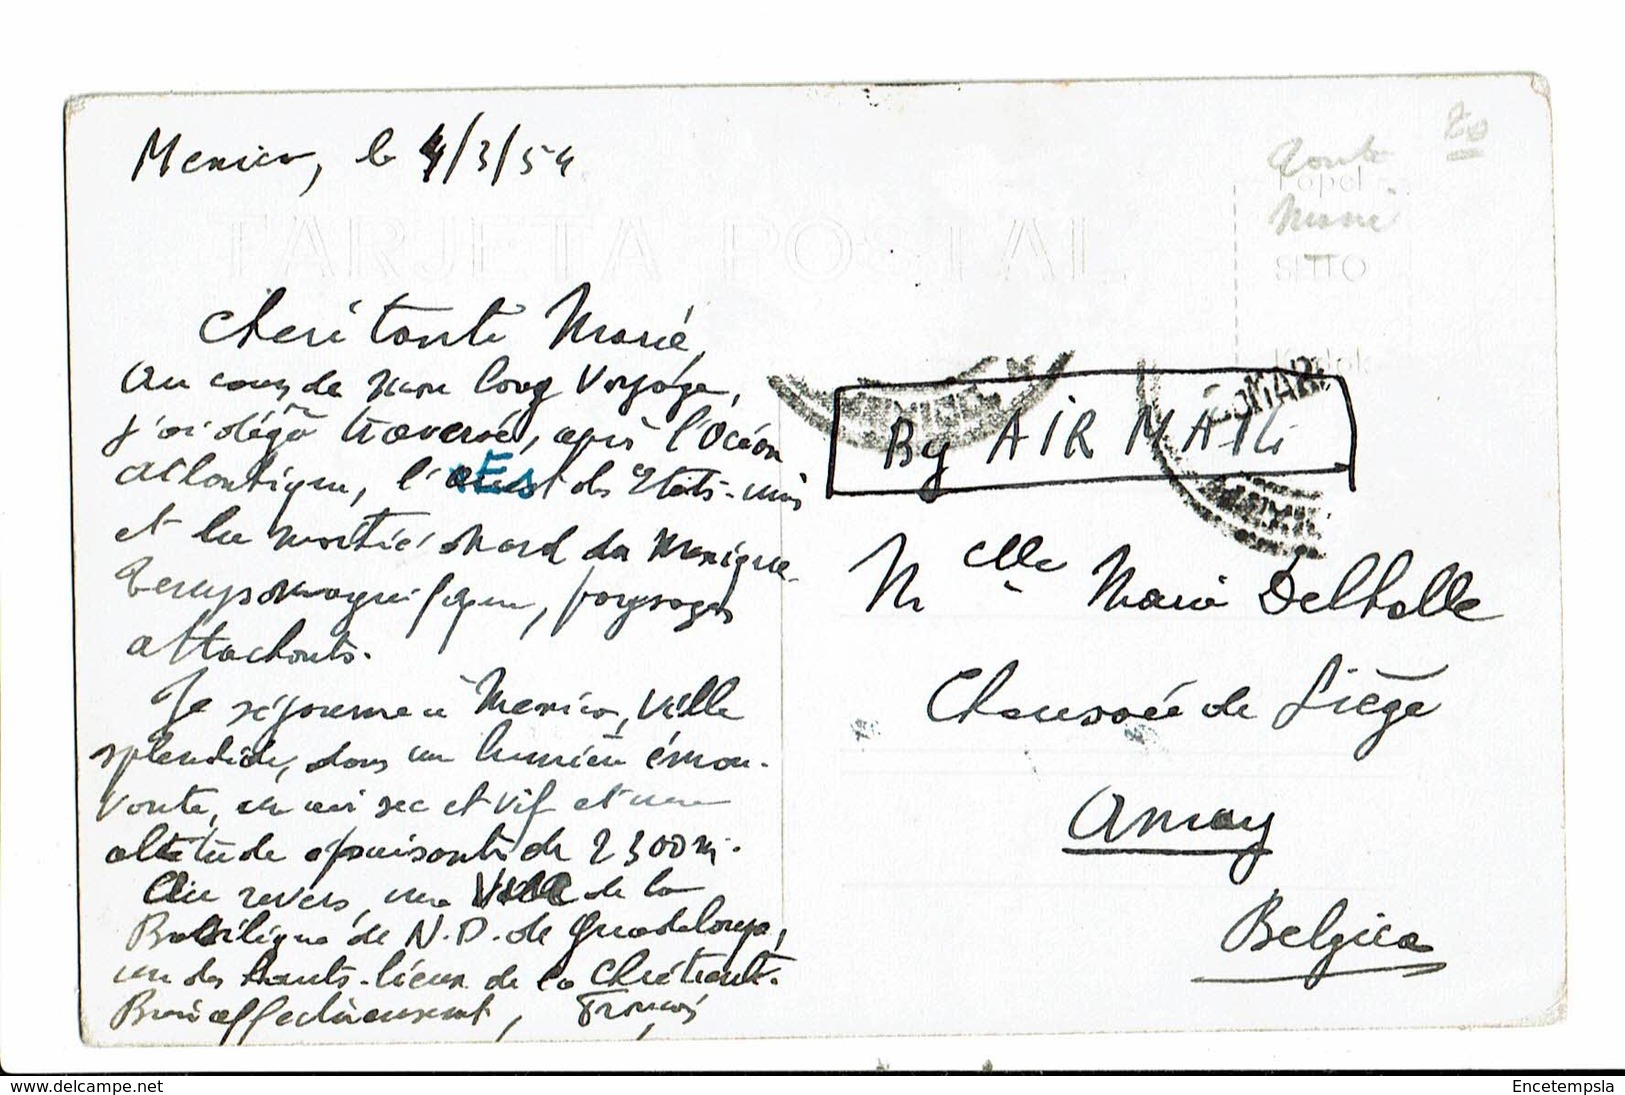 Mexico, le 4/3/54
TARJETA POSTAL
Papel
SITIO
Kodak
Cheri tante Marie,
Au cours de mon long Voyage,
j'ai déjà traversé, après l'Océan
Atlantique, l'Est des Etats-unis
et la moitié Nord du Mexique.
Temps magnifique, paysages
attachants.
Je séjourne à Mexico, ville
splendide, dans un lumière émou-
vante, un air sec et vif et une
altitude épuisante de 2300 m.
Au revers, une Vue de la
Basilique de N.D. de Guadeloupe,
un des hauts-lieux de la Chrétienté.
Bien affectueusement, François
By AIR MAIL
Melle Marie Delhalle
Chaussée de Liège
Amay
Belgica
delcampe.net
Encetempsla